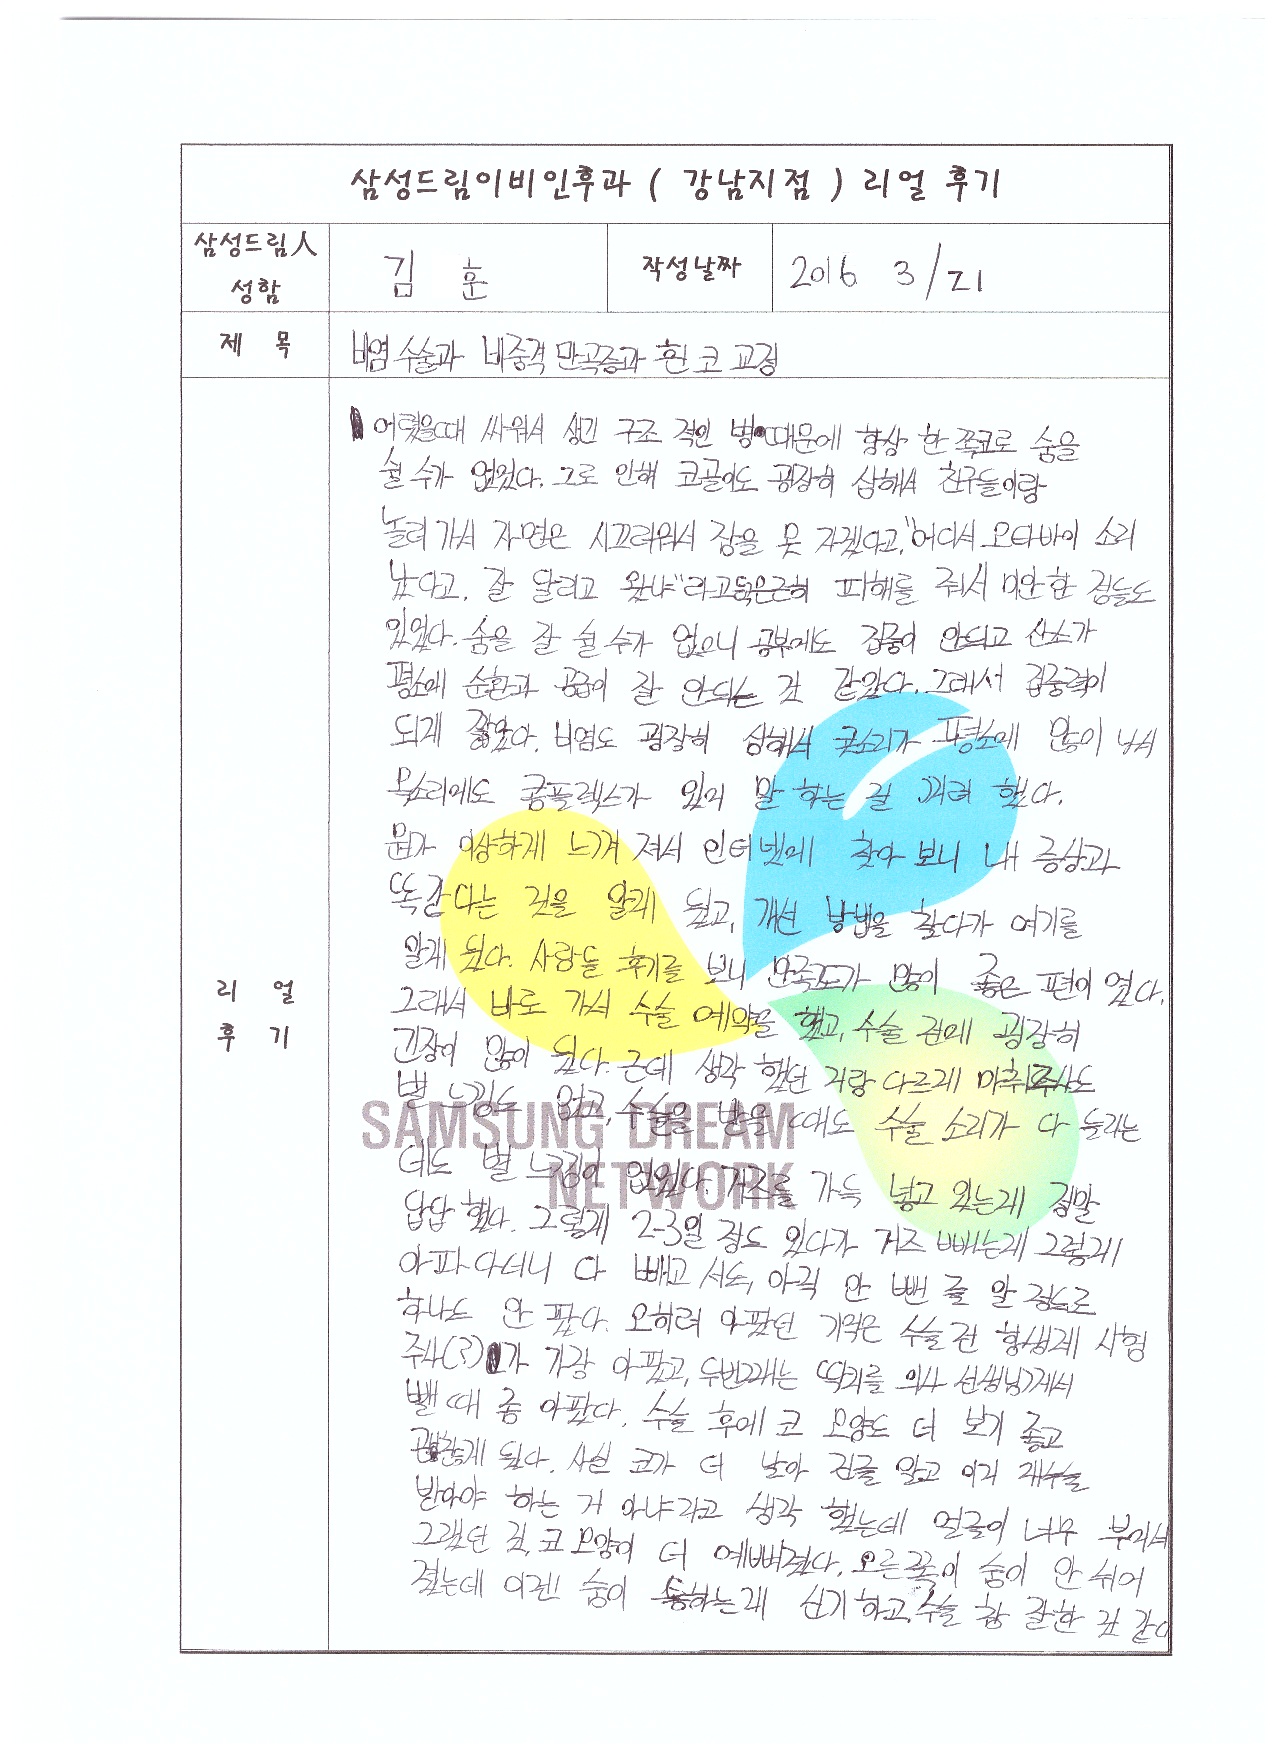 삼성드림이비인후과 ( 강남지점 ) 리얼 후기
삼성드림人 성함
김 훈
작성날짜
2016 3/21
제 목
비염 수술과 비중격 만곡증과 휜 코 교정
리 얼 후 기
어렸을때 싸워서 생긴 구조 적인 병때문에 항상 한 쪽코로 숨을
쉴 수가 없었다. 그로 인해 코골이도 굉장히 심해서 친구들이랑
놀러가서 자면은 시끄러워서 잠을 못 자겠다고, "어디서 오타바이 소리
났다고, 잘 달리고 왔냐"라고 은근히 피해를 줘서 미안한 점들도
있었다. 숨을 잘 쉴 수가 없으니 공부에도 집중이 안되고 산소가
평소에 순환과 공급이 잘 안되는 것 같았다. 그래서 집중력이
되게 짧았다. 비염도 굉장히 심해서 콧소리가 평소에 많이 나서
목소리에도 콤플렉스가 있어 말 하는 걸 꺼려 했다.
뭔가 이상하게 느껴 져서 인터넷에 찾아 보니 내 증상과
똑같다는 것을 알게 됬고, 개선 방법을 찾다가 여기를
알게 됬다. 사람들 후기를 보니 만족도가 많이 좋은 편이 였다.
그래서 바로 가서 수술 예약을 했고, 수술 전에 굉장히
긴장이 많이 됬다. 근데 생각 했던 거랑 다르게 마취주사도
별 느낌도 없고, 수술을 받을 때도 수술 소리가 다 들리는
데도 별 느낌이 없었다. 거즈를 가득 넣고 있는게 정말
답답 했다. 그렇게 2-3일 정도 있다가 거즈 빼는게 그렇게
아파 다더니 다 빼고 서도, 아직 안 뺀 줄 알 정도로
하나도 안 팠다. 오히려 아팠던 기억은 수술 전 항생제 시험
주사(?)가 가장 아팠고, 두번째는 딱지를 의사 선생님께서
뺄 때 좀 아팠다. 수술 후에 코 모양도 더 보기 좋고
괜찮게 됬다. 사실 코가 더 낮아 진줄 알고 이거 재수술
받아야 하는 거 아냐라고 생각 했는데 얼굴이 너무 부어서
그랬던 것, 코 모양이 더 예뻐졌다. 오른쪽이 숨이 안 쉬어
졌는데 이젠 숨이 통하는게 신기하고, 수술 참 잘한 것 같다
SAMSUNG DREAM
NETWORK